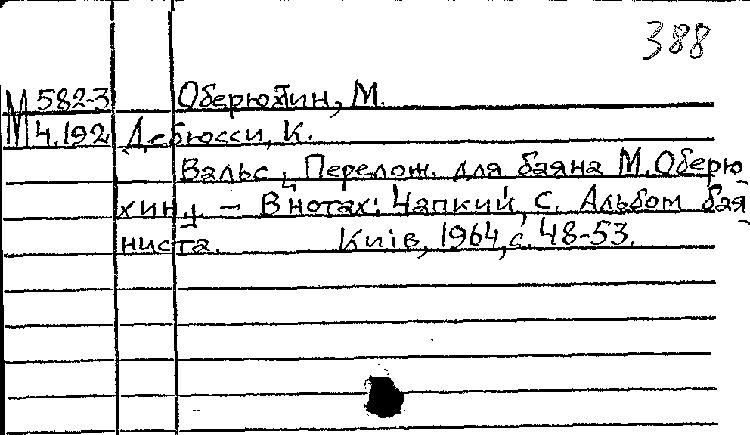 388
М 582-3 Оберюхтин, М.
4.192 Дебюсси, К.
Вальс. Перелож. для баяна М. Оберю-
хин. – В нотах: Чапкий, С. Альбом бая-
ниста. Київ, 1964, с. 48-53.